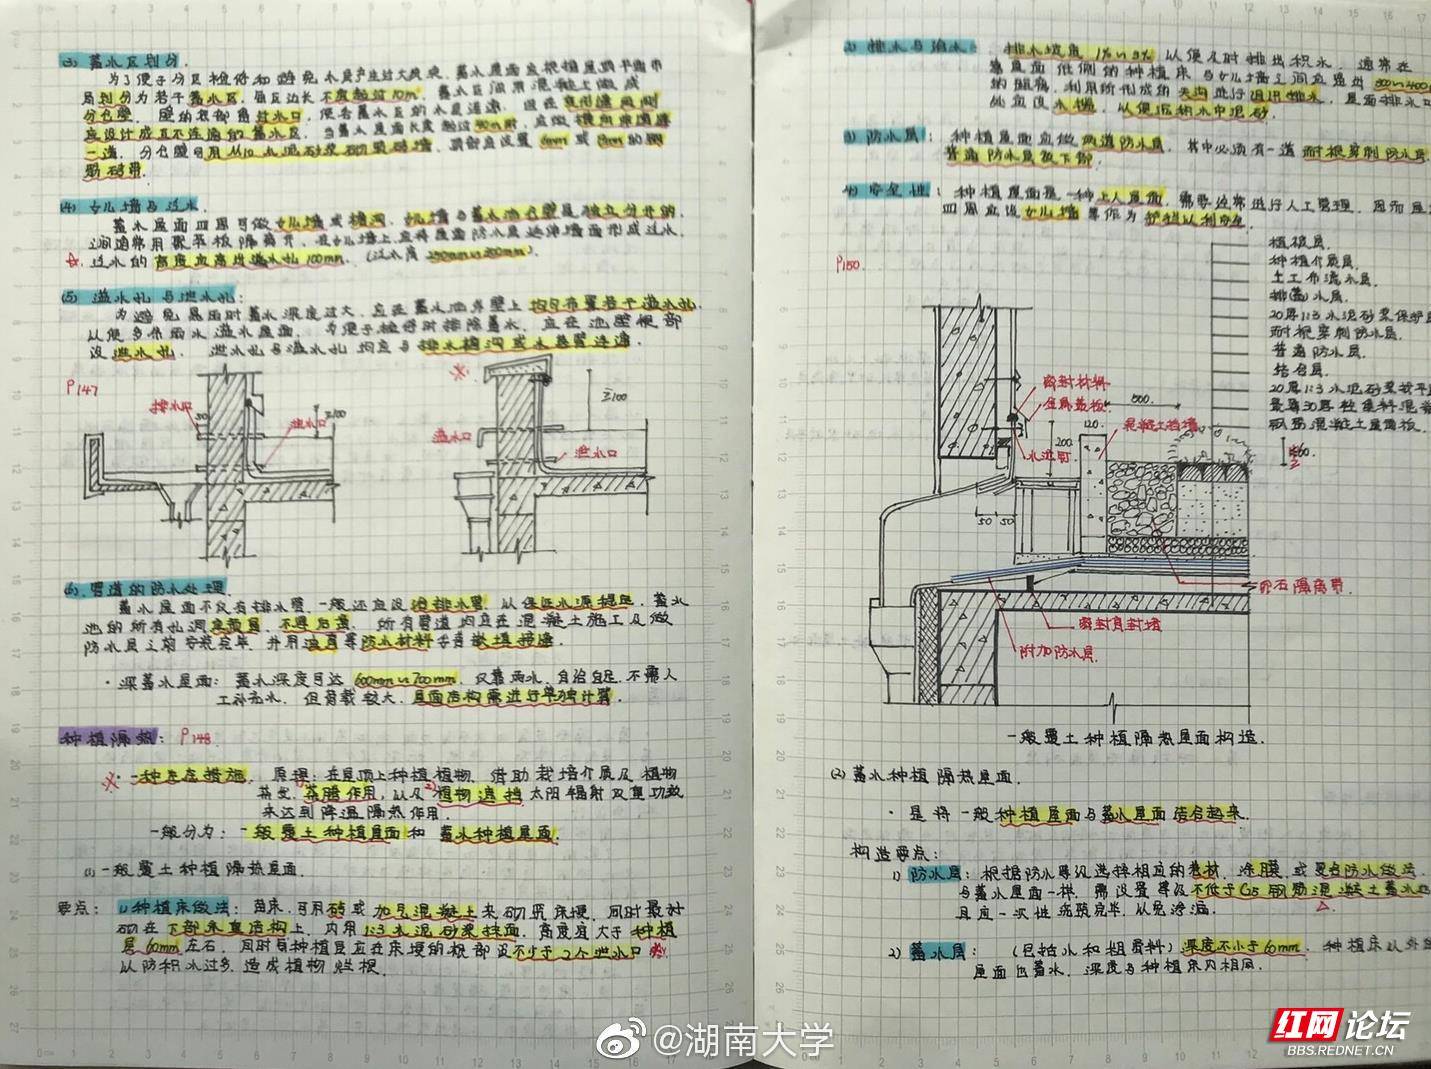 (3) 蓄水区划分.
为了便于分区检修和避免水层产生过大风浪, 蓄水屋面应根据屋顶平面布
局划分为若干蓄水区, 每区边长不宜超过10m.
一道. 分仓壁可用M10水泥砂浆砌筑砖墙, 顶部应设置6mm或8mm的钢
筋砖带.
(4) 女儿墙与泛水.
蓄水屋面四周可做女儿墙或檐沟. 女儿墙与蓄水池仓壁是独立分开的.
之间通常用聚苯板隔离开, 在女儿墙上应将屋面防水层延伸墙面形成泛水.
泛水的高度应高出溢水孔100mm. (泛水高250mm~300mm).
(5) 溢水孔与泄水孔:
为避免暴雨时蓄水深度过大, 应在蓄水池外壁上均匀布置若干溢水孔.
以便多余雨水溢出屋面. 为便于检修时排除蓄水, 应在池壁根部
设泄水孔. 泄水孔与溢水孔均应与排水檐沟或水落管连通.
P147
排水口
50
≥100
泄水口
≥100
溢水口
泄水口
(6) 管道的防水处理.
蓄水屋面不仅有排水管, 一般还应设给排水管, 以保证水源稳定. 蓄水
池的所有孔洞应预留, 不得后凿. 所有管道均应在混凝土施工及做
防水层之前安装完毕, 并用油膏等防水材料妥善嵌填接缝.
· 深蓄水屋面: 蓄水深度可达600mm~700mm, 仅靠雨水, 自给自足, 不需人
工补充水. 但荷载较大, 屋面结构需进行单独计算.
种植隔热: P148.
※ · 一种生态措施. 原理: 在屋顶上种植植物, 借助栽培介质及植物
蒸腾作用, 以及植物遮挡太阳辐射双重功效
来达到降温隔热作用.
一般分为: 一般覆土种植屋面和蓄水种植屋面.
(1) 一般覆土种植隔热屋面.
要点: 1) 种植床做法: 苗床, 可用砖或加气混凝土来砌筑床埂, 同时最好
砌在下部承重结构上, 内用1:3水泥砂浆抹面, 高度宜大于种植
层60mm左右, 同时每种植层应在床埂的根部设不少于2个泄水口 ※
以防积水过多, 造成植物烂根.
2) 排水与给水: 排水坡度1%~3% 以便及时排出积水, 通常在
靠屋面低侧的种植床与女儿墙之间应留出300~400
的距离, 利用所形成的天沟进行组织排水, 屋面排水口
处应设水槽, 以便沉积水中泥砂.
3) 防水层: 种植屋面应做两道防水层, 其中必须有一道耐根穿刺防水层.
普通防水层放下部.
4) 安全性: 种植屋面是一种上人屋面, 需要经常进行人工管理, 因而屋
四周应设女儿墙等作为护栏以利安全.
P150
植被层.
种植介质层.
土工布滤水层.
排(蓄)水层.
20厚1:3水泥砂浆保护层
耐根穿刺防水层.
普通防水层.
结合层.
20厚1:3水泥砂浆找平
最薄30厚轻集料混凝
钢筋混凝土屋面板.
密封材料
金属盖板
水泥钉
混凝土挡墙
500
120
200
≥60
50 50
卵石隔离带.
密封膏封堵
附加防水层.
一般覆土种植隔热屋面构造.
(2) 蓄水种植隔热屋面.
· 是将一般种植屋面与蓄水屋面结合起来.
构造要点:
1) 防水层: 根据防水等级选择相应的卷材, 涂膜, 或复合防水做法.
与蓄水屋面一样, 需设置等级不低于C25钢筋混凝土蓄水池
且应一次性浇筑完毕, 以免渗漏.
2) 蓄水层: (包括水和粗骨料) 深度不小于60mm. 种植床以外的
屋面也蓄水, 深度与种植床内相同.
@湖南大学
红网论坛
BBS.REDNET.CN